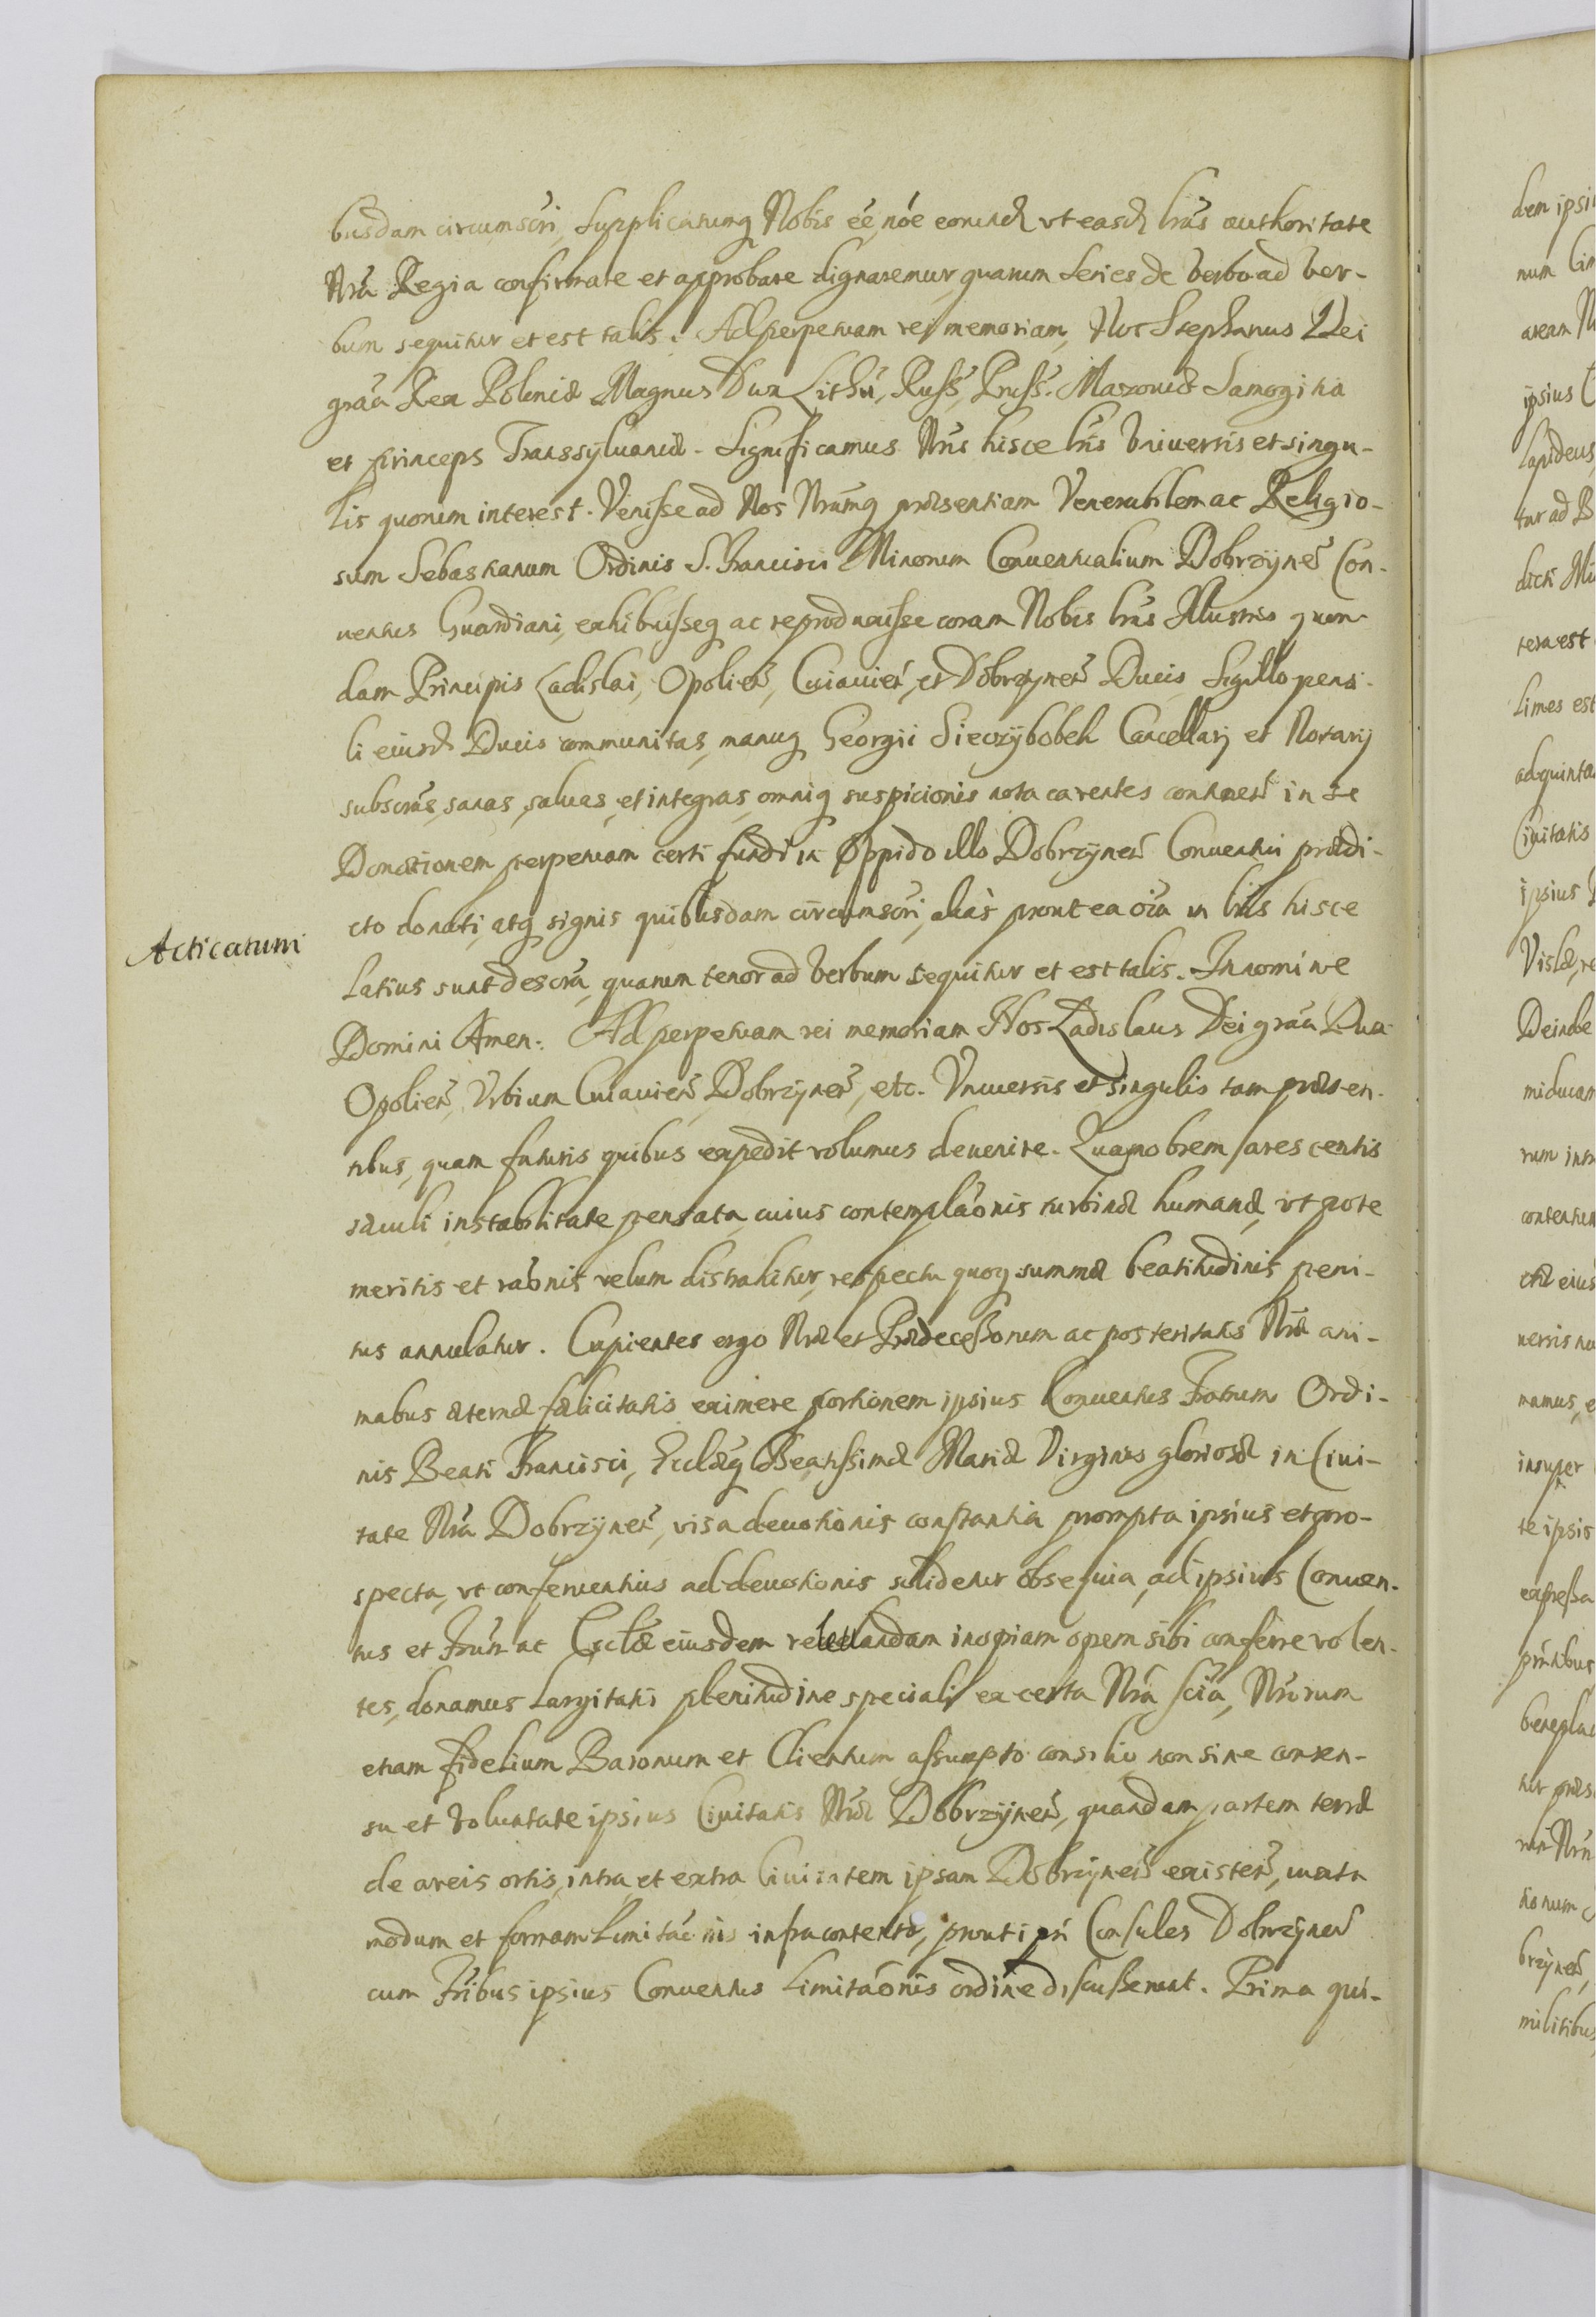 busdam circumscri, Supplicatumq Nobis eé, nóe eorund ut easd lrás authoritate
Nrá Regia confirmare et approbare dignaremur, quarum series de verbo ad ver-
bum sequitur et est talis. Ad perpetuam rei memoriam, Nos Stephanus Dei
gráa Rex Poloniæ Magnus Dux Lithú, Russ, Pruss. Mazouiæ Samogitia
et princeps Transsyluaniæ. Significamus Nris hisce lris Vniuersis et singu-
lis quorum interest. Venisse ad Nos Nramq præsentiam Venerabilem ac Religio-
sum Sebastianum Ordinis S. Francisci Minorum Conuentualium Dobrzyneñ Con-
uentus Guardiani, exhibuisseq ac reproduxisse coram Nobis lras Illustris quon-
dam Principis Ladislai, Opolieñ, Cuiauieñ, et Dobrzyneñ Ducis Sigillo pensi-
li eiusd Ducis communitas, manuq Georgii Sieczybobek Cancellarij et Notarij
subscrás, sanas, saluas, et integras, omniq suspicionis nota carentes contineñ in se
Donationem perpetuam certi fundi in Oppido illo Dobrzyneñ Conuentui prædi-
cto donati, atq signis quibusdam circumscri, aliàs prout ea oía in lris hisce
Acticatum
latius sunt descrá, quarum tenor ad verbum sequitur et est talis. In nomine
Domini Amen. Ad perpetuam rei memoriam Nos Ladislaus Dei gráa Dux
Opolieñ, Vrbium Cuiauieñ, Dobrzyneñ, etc. Vniuersis et singulis tam præsen-
tibus, quam futuris quibus expedit volumus deuenire. Quamobrem sarescentis
sæculi instabilitate pensata, cuius contemplaónis turbinæ humanæ, ut pote
meritis et raónis velum distrahitur, respectu quoq summæ beatitudinis peni-
tus annulatur. Cupientes ergo Nræ et Prædecessorum ac posteritatis Nræ ani-
mabus æternæ fælicitatis eximere portionem ipsius Conuentus Fratrum Ordi-
nis Beati Francisci, Ecclæq Beatissimæ Mariæ Virginis gloriosæ in Ciui-
tate Nrá Dobrzyneñ, visa deuotionis constantia prompta ipsius et pro-
specta, ut conferuentius ad deuotionis solidetur obsequia, ad ipsius Conuen-
tus et Frum ac Ecclæ eiusdem releuandam inopiam opem sibi conferre volen-
tes, donamus largitatis plenitudine speciali ex certa Nrá sciá, Nrorum
etiam fidelium Baronum et Clientum assumpto consilio non sine consen-
su et voluntate ipsius Ciuitatis Nræ Dobrzyneñ, quandam partem terræ
de areis ortis, intra et extra Ciuitatem ipsam Dobrzyneñ existeñ, iuxta
modum et formam limitaónis infracontentæ, prout ipsi Consules Dobrzyneñ
cum Fribus ipsius Conuentus limitaónis ordine discusserunt. Prima qui-